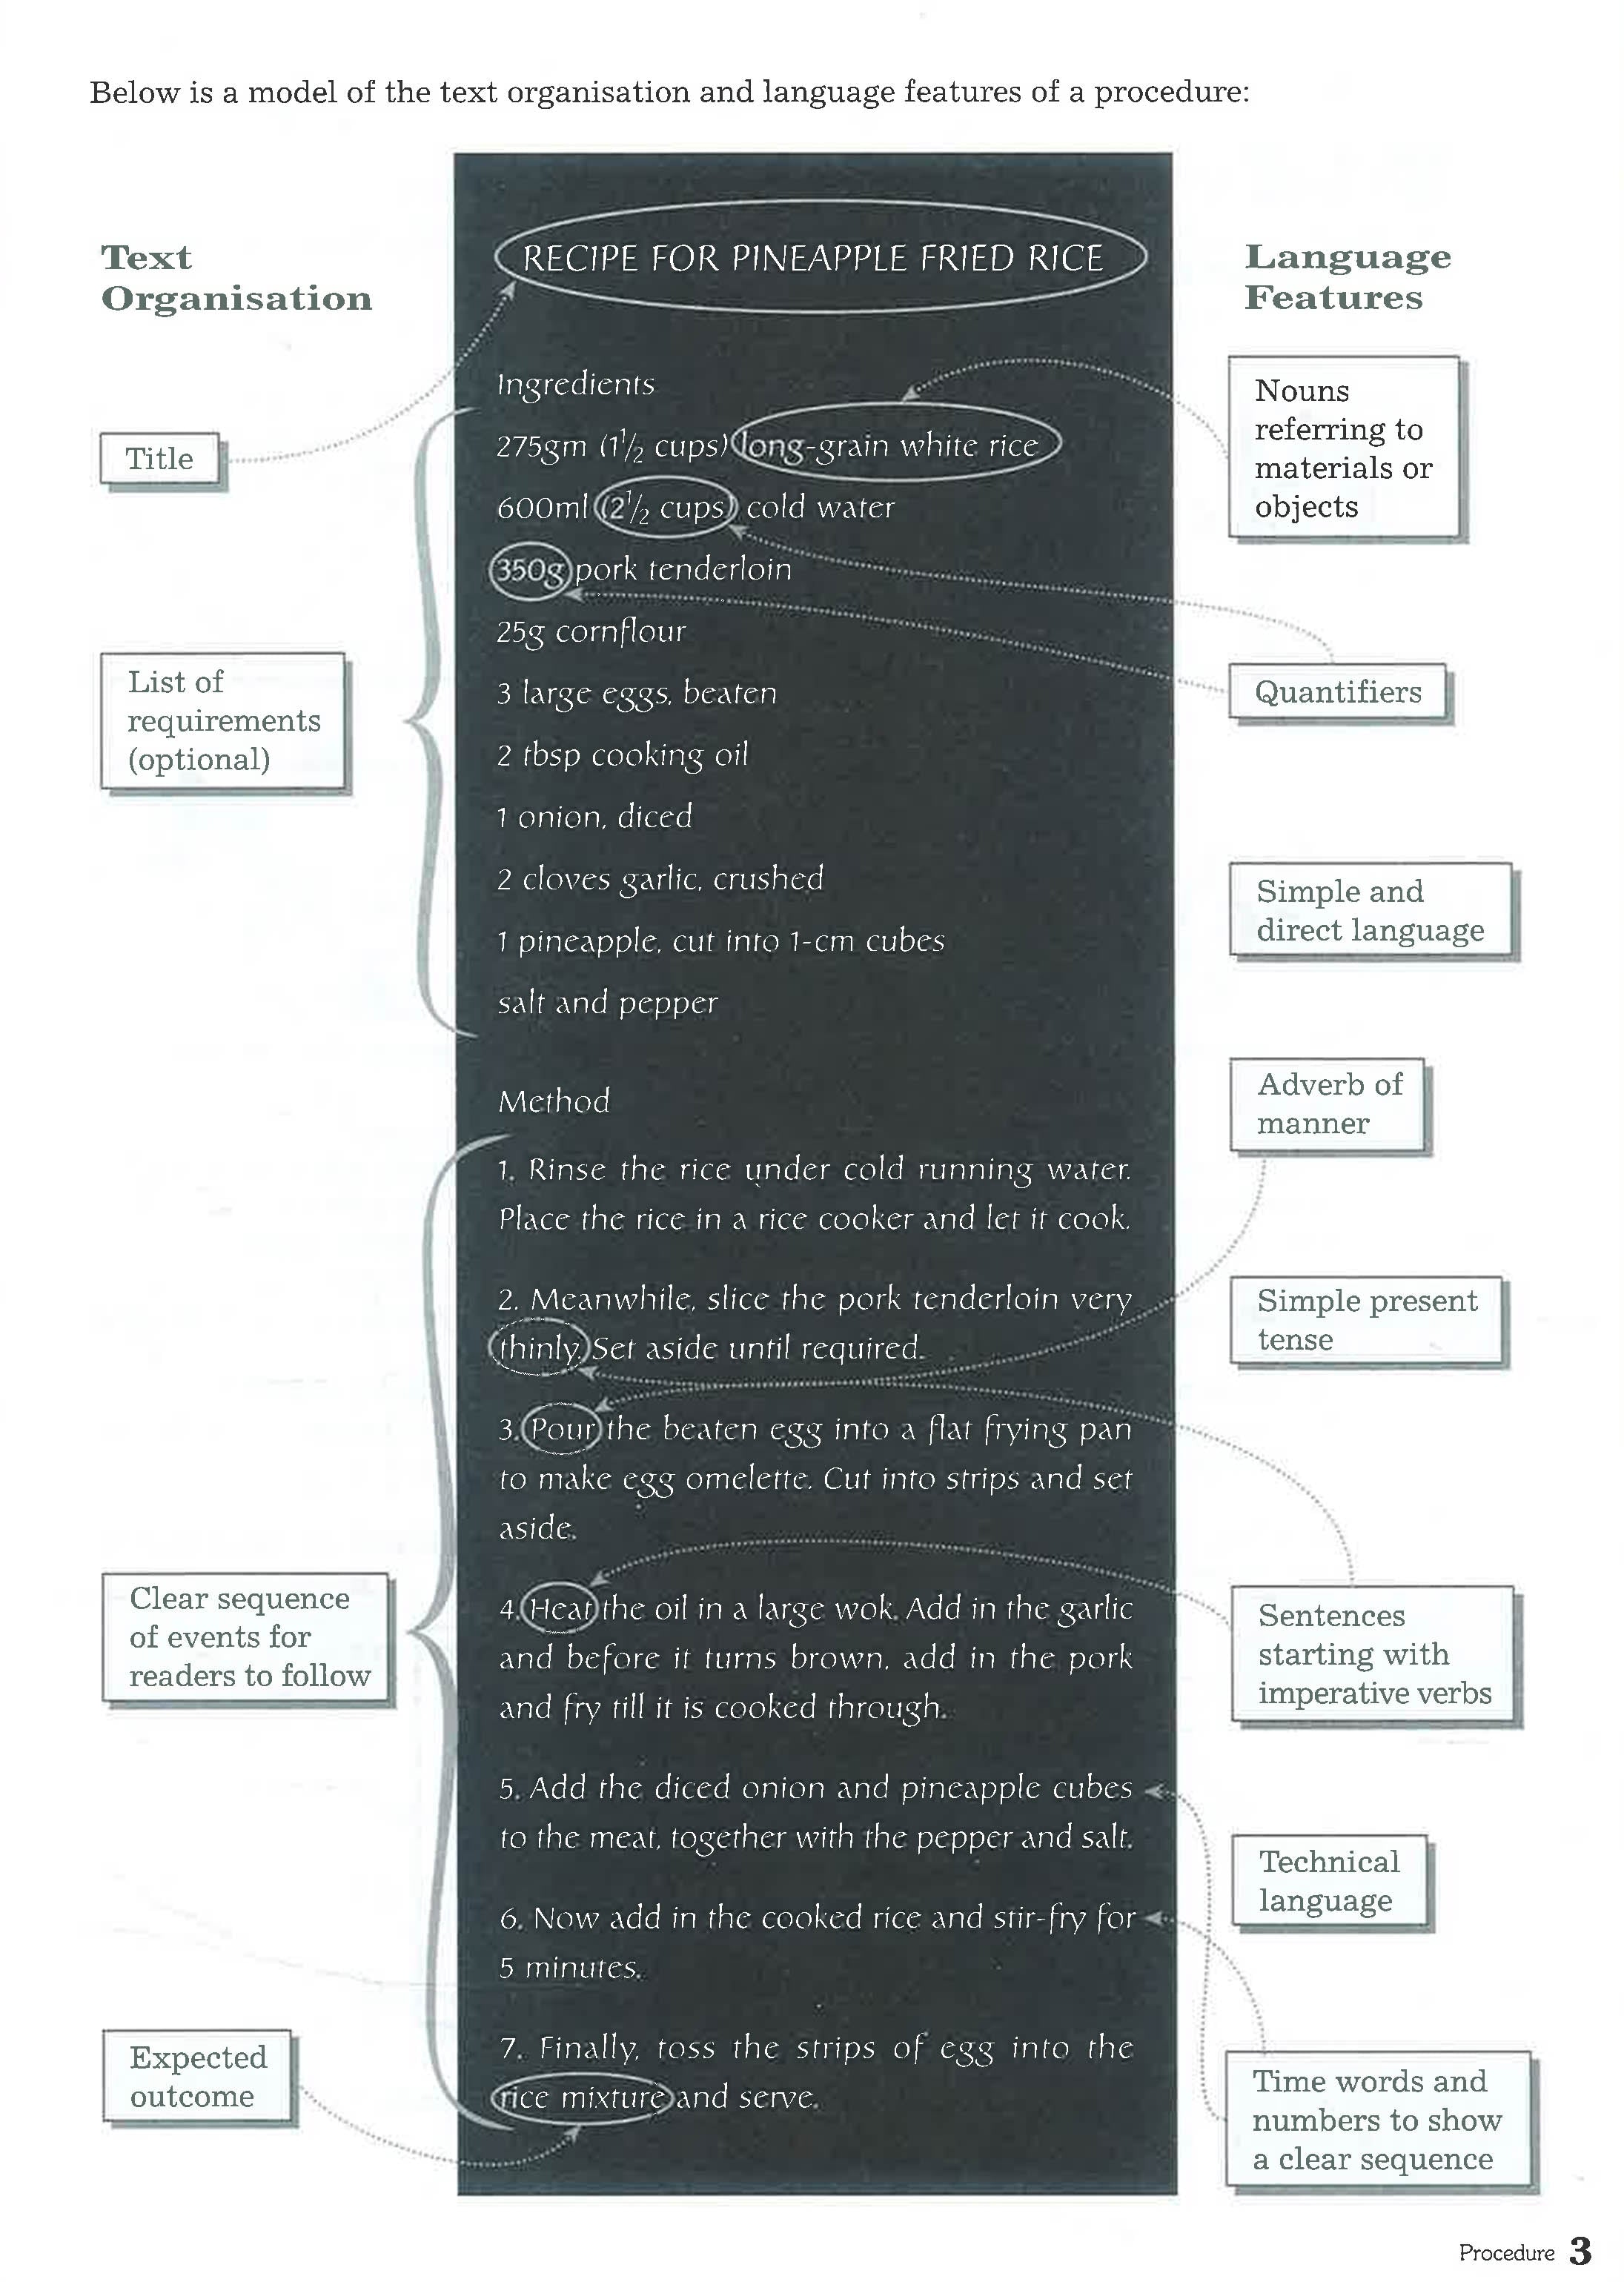 Below is a model of the text organisation and language features of a procedure:
Text
Organisation
Title
List of
requirements
(optional)
Clear sequence
of events for
readers to follow
Expected
outcome
RECIPE FOR PINEAPPLE FRIED RICE
Ingredients
275gm (1½ cups) long-grain white rice
600ml (2½ cups) cold water
350g pork tenderloin
25g cornflour
3 large eggs, beaten
2 tbsp cooking oil
1 onion, diced
2 cloves garlic, crushed
1 pineapple, cut into 1-cm cubes
salt and pepper
Method
1. Rinse the rice under cold running water.
Place the rice in a rice cooker and let it cook.
2. Meanwhile, slice the pork tenderloin very
thinly. Set aside until required.
3. Pour the beaten egg into a flat frying pan
to make egg omelette. Cut into strips and set
aside.
4. Heat the oil in a large wok. Add in the garlic
and before it turns brown, add in the pork
and fry till it is cooked through.
5. Add the diced onion and pineapple cubes
to the meat, together with the pepper and salt.
6. Now add in the cooked rice and stir-fry for
5 minutes.
7. Finally, toss the strips of egg into the
rice mixture and serve.
Language
Features
Nouns
referring to
materials or
objects
Quantifiers
Simple and
direct language
Adverb of
manner
Simple present
tense
Sentences
starting with
imperative verbs
Technical
language
Time words and
numbers to show
a clear sequence
Procedure 3